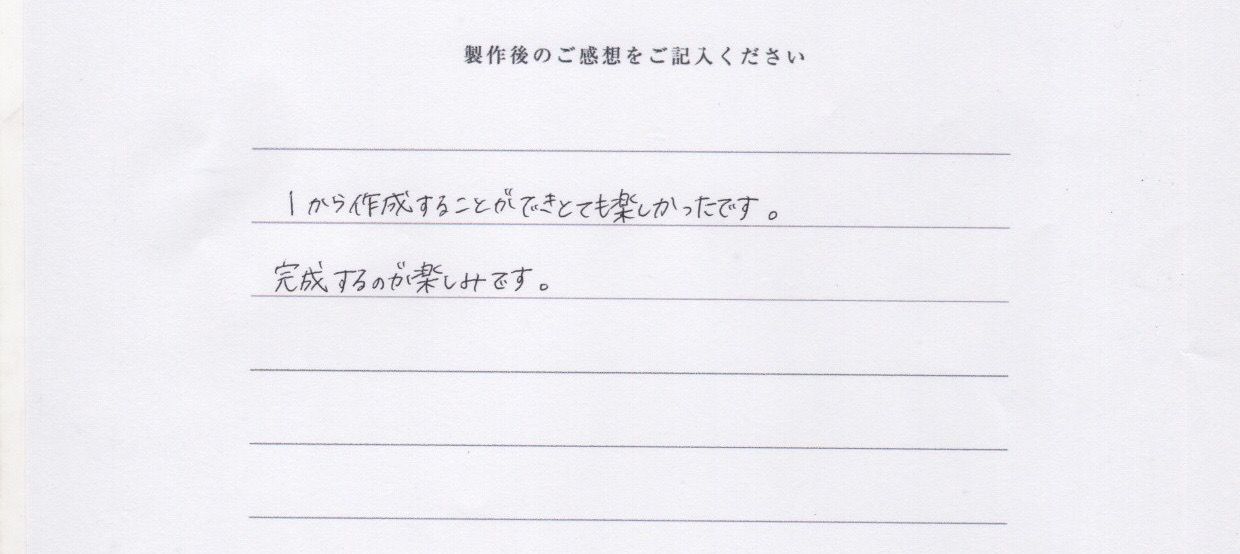 製作後のご感想をご記入ください
1から作成することができとても楽しかったです。
完成するのが楽しみです。